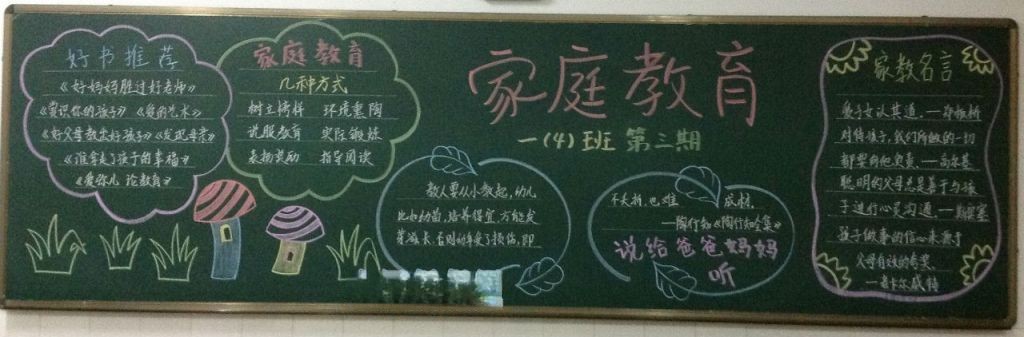 好书推荐
《好妈妈胜过好老师》
《赏识你的孩子》《爱的艺术》
《好父母教出好孩子》《发现母亲》
《谁拿走了孩子的幸福》
《爱弥儿 论教育》
家庭教育
几种方式
树立榜样 环境熏陶
说服教育 实际锻炼
表扬奖励 指导阅读
家庭教育
一(4)班 第三期
教人要从小教起,幼儿
比如幼苗,培养得宜,方能发
芽滋长,否则幼年受了损伤,即
不夭折,也难 成材。
—陶行知《陶行知全集》
说给爸爸妈妈
听
家教名言
爱子女以其道。—郑板桥
对待孩子,我们所做的一切
都要有他负责。—高尔基
聪明的父母总是善于与孩
子进行心灵沟通。
孩子做事的信心来源于
父母有效的夸奖。
—卡尔威特